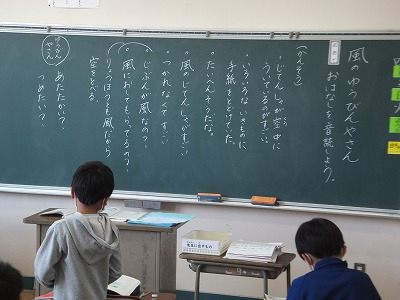 風のゆうびんやさん
おはなしを音読しよう。
(かんそう)
・じてんしゃが空中に
ういているがすごい。
・いろいろないきものに
手紙をとどけていた。
・たいへんそうだな。
・風のじてんしゃがすごい。
・つかれなくてすごい。
・じぶんが風なの?
・風におしてもらってるの?
りょうほうとも風だから
空をとべる。
あたたかい?
つめたい?